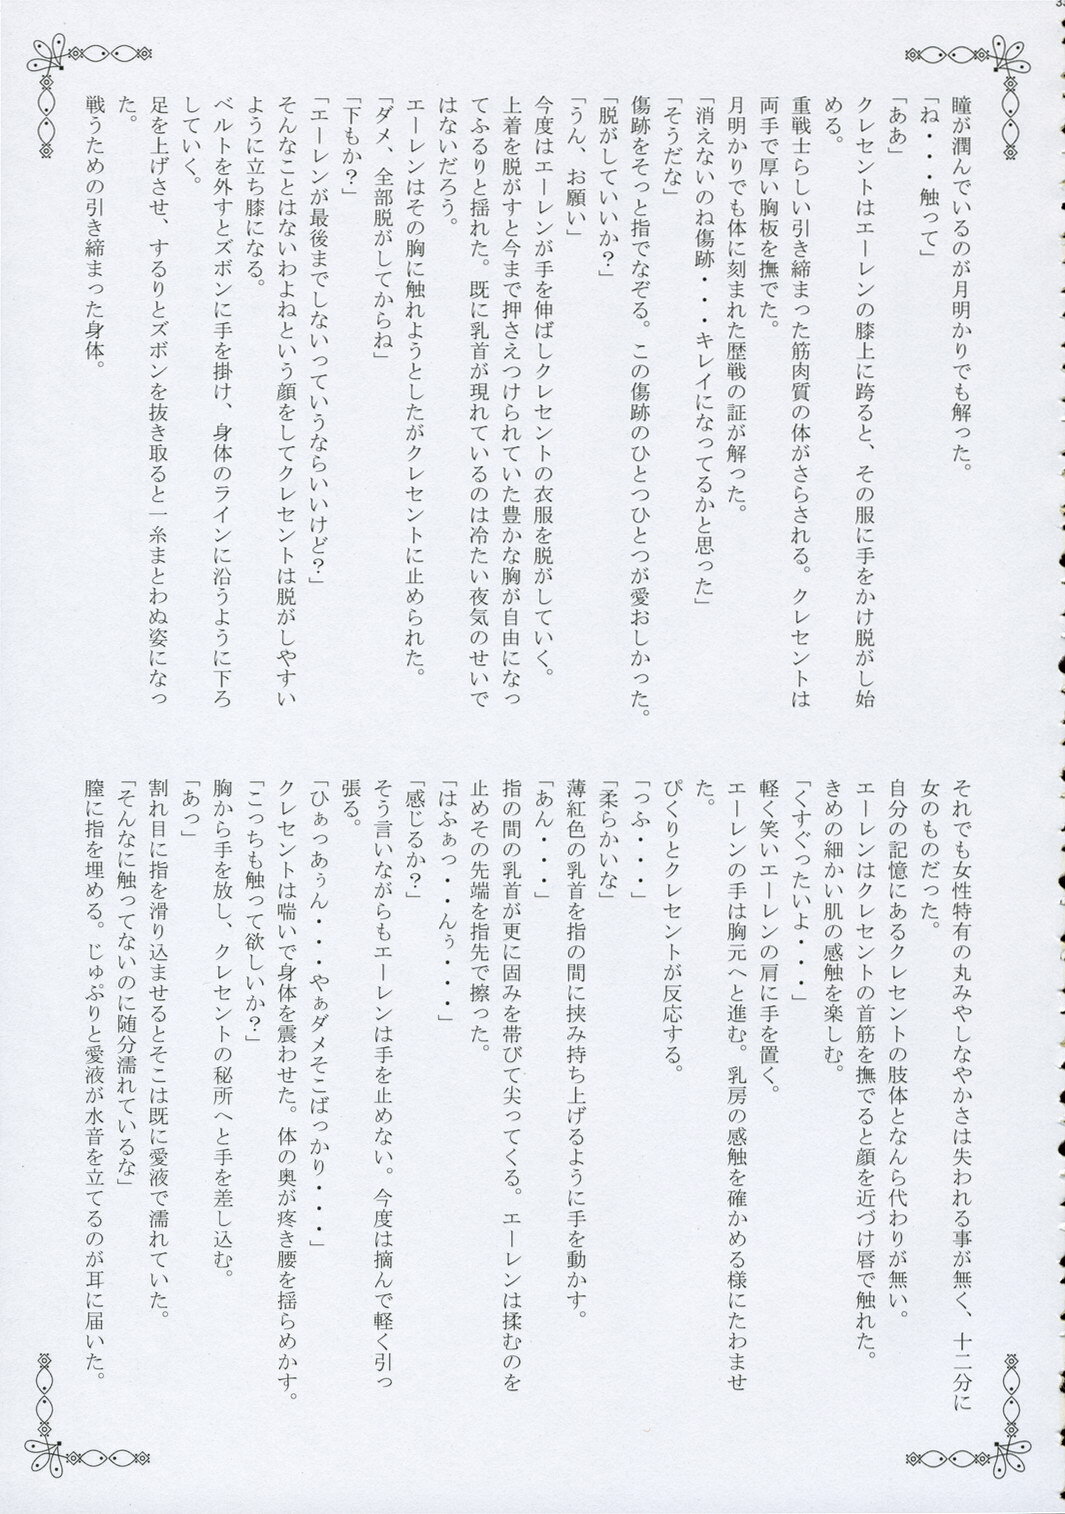 瞳が潤んでいるのが月明かりでも解った。
「ね・・・触って」
「ああ」
クレセントはエーレンの膝上に跨ると、その服に手をかけ脱がし始
める。
重戦士らしい引き締まった筋肉質の体がさらされる。クレセントは
両手で厚い胸板を撫でた。
月明かりでも体に刻まれた歴戦の証が解った。
「消えないのね傷跡・・・キレイになってるかと思った」
「そうだな」
傷跡をそっと指でなぞる。この傷跡のひとつひとつが愛おしかった。
「脱がしていいか？」
「うん、お願い」
今度はエーレンが手を伸ばしクレセントの衣服を脱がしていく。
上着を脱がすと今まで押さえつけられていた豊かな胸が自由になっ
てふるりと揺れた。既に乳首が現れているのは冷たい夜気のせいで
はないだろう。
エーレンはその胸に触れようとしたがクレセントに止められた。
「ダメ、全部脱がしてからね」
「下もか？」
「エーレンが最後までしないっていうならいいけど？」
そんなことはないわよねという顔をしてクレセントは脱がしやすい
ように立ち膝になる。
ベルトを外すとズボンに手を掛け、身体のラインに沿うように下ろ
していく。
足を上げさせ、するりとズボンを抜き取ると一糸まとわぬ姿になっ
た。
戦うための引き締まった身体。
それでも女性特有の丸みやしなやかさは失われる事が無く、十二分に
女のものだった。
自分の記憶にあるクレセントの肢体となんら代わりが無い。
エーレンはクレセントの首筋を撫でると顔を近づけ唇で触れた。
きめの細かい肌の感触を楽しむ。
「くすぐったいよ・・・」
軽く笑いエーレンの肩に手を置く。
エーレンの手は胸元へと進む。乳房の感触を確かめる様にたわませ
た。
ぴくりとクレセントが反応する。
「っふ・・・」
「柔らかいな」
薄紅色の乳首を指の間に挟み持ち上げるように手を動かす。
「あん・・・」
指の間の乳首が更に固みを帯びて尖ってくる。エーレンは揉むのを
止めその先端を指先で擦った。
「はふぁっ・・・んぅ・・・」
「感じるか？」
そう言いながらもエーレンは手を止めない。今度は摘んで軽く引っ
張る。
「ひぁっあぅん・・・やぁダメそこばっかり・・・」
クレセントは喘いで身体を震わせた。体の奥が疼き腰を揺らめかす。
「こっちも触って欲しいか？」
胸から手を放し、クレセントの秘所へと手を差し込む。
「あっ」
割れ目に指を滑り込ませるとそこは既に愛液で濡れていた。
「そんなに触ってないのに随分濡れているな」
膣に指を埋める。じゅぷりと愛液が水音を立てるのが耳に届いた。